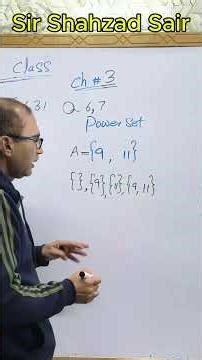 Sir Shahzad Sair
Class
Ch # 3
31
Q 6,7
Power Set
A={9, 11}
{ },{9},{11},{9,11}